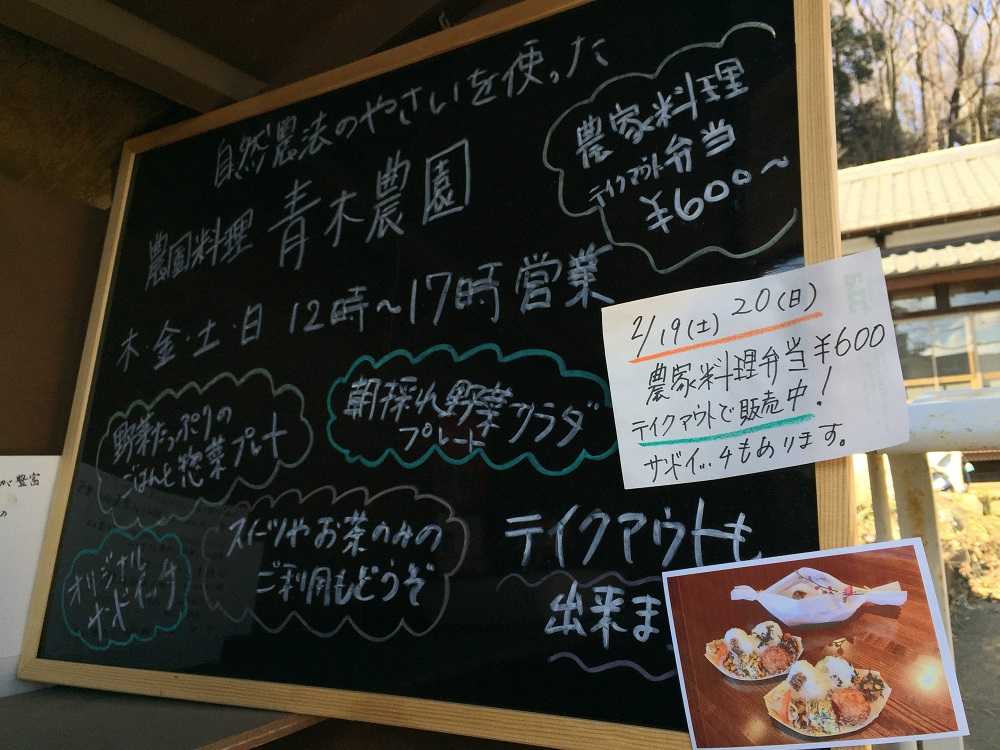 自然農法のやさいを使った
農園料理 青木農園
木・金・土・日 12時〜17時 営業
農家料理
テイクアウト弁当
¥600〜
2/19(土) 20(日)
農家料理弁当¥600
テイクアウトで販売中!
サンドイッチもあります。
野菜たっぷりの
ごはんと惣菜プレート
朝採れ野菜サラダ
プレート
オリジナル
サンドイッチ
スイーツやお茶のみの
ご利用もどうぞ
テイクアウトも
出来ま